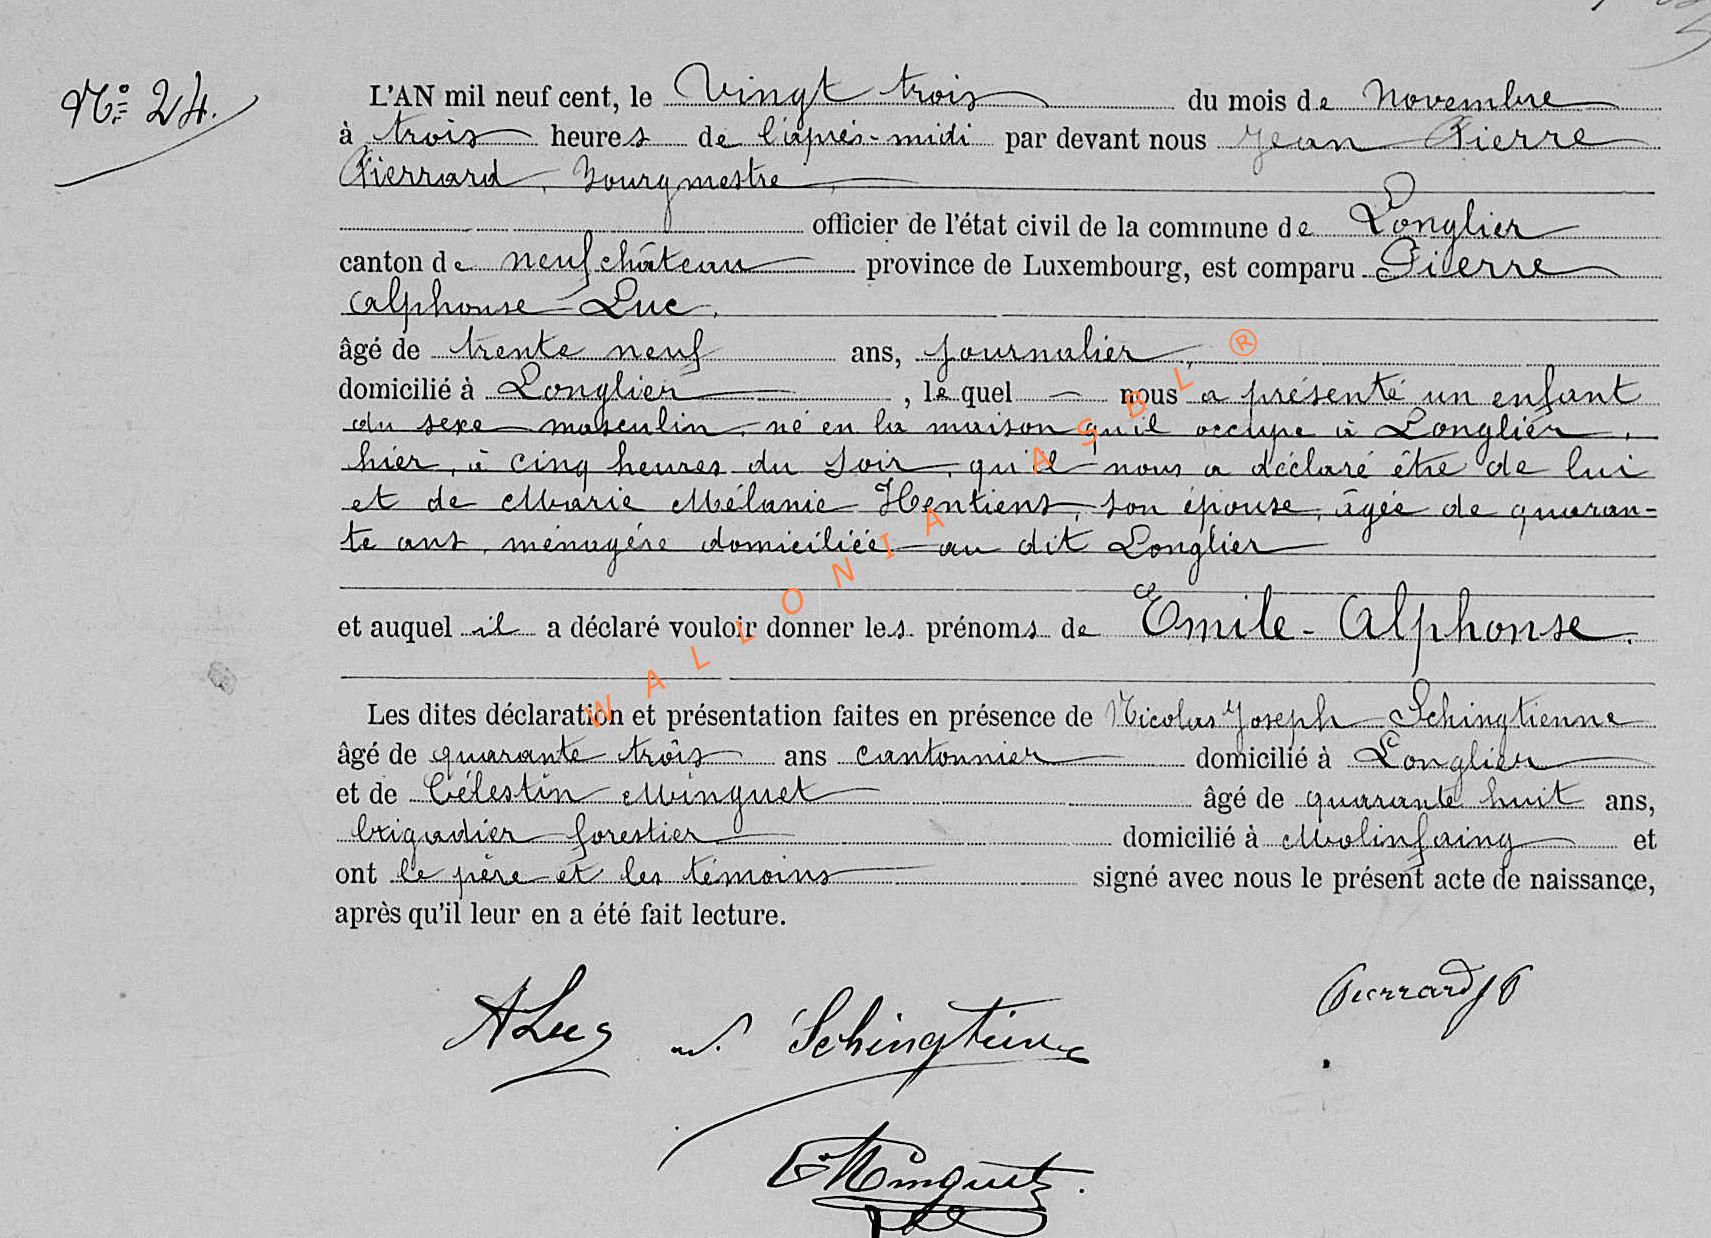 Nº 24.
L'AN mil neuf cent, le Vingt trois du mois de Novembre
à trois heures de l'après-midi par devant nous Jean Pierre
Pierrard, Bourgmestre
officier de l'état civil de la commune de Longlier
canton de neufchâteau province de Luxembourg, est comparu Pierre
Alphonse Luc,
âgé de trente neuf ans, journalier,
domicilié à Longlier, lequel nous a présenté un enfant
du sexe masculin, né en la maison qu'il occupe à Longlier,
hier, à cinq heures du soir, qu'il nous a déclaré être de lui
et de Marie Mélanie Hentiens, son épouse, âgée de quaran=
te ans, ménagère domiciliée au dit Longlier
et auquel il a déclaré vouloir donner les prénoms de Emile-Alphonse.
Les dites déclaration et présentation faites en présence de Nicolas Joseph Schingtienne
âgé de quarante trois ans cantonnier domicilié à Longlier
et de Célestin Minguet âgé de quarante huit ans,
brigadier forestier domicilié à Molinfaing et
ont le père et les témoins signé avec nous le présent acte de naissance,
après qu'il leur en a été fait lecture.
WALLONIA ASBL ®
A Luc
Schingtienne
Pierrard J P
C Minguet